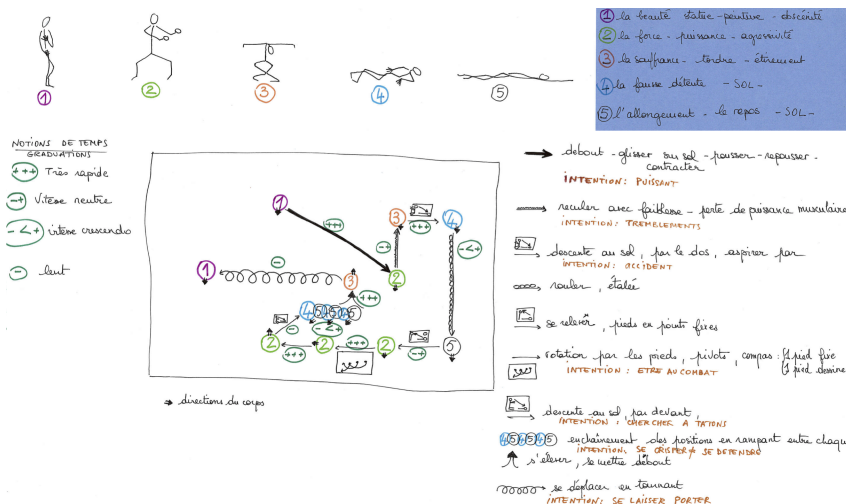 1 2 3 4 5
1 la beauté statue - peinture - obscénité
2 la force - puissance - agressivité
3 la souffrance - tordre - étirement
4 la fausse détente - SOL -
5 l'allongement - le repos - SOL -
NOTIONS DE TEMPS
GRADUATIONS
+++ Très rapide
-+ Vitesse neutre
-<+ vitesse crescendo
- lent
1 +++ 3 +++ 4
-+ -<+
1 - 3 2
+++
4 5 4 5 4 5
- -<+
2 +++ 2 +++ 2 -+ 5
directions du corps
debout - glisser au sol - pousser - repousser -
contracter
INTENTION: PUISSANT
reculer avec faiblesse - perte de puissance musculaire
INTENTION: TREMBLEMENTS
descente au sol, par le dos, aspirer par
INTENTION: ACCIDENT
rouler, étalée
se relever, pieds en points fixes
rotation par les pieds, pivots, compas: 1 pied fixe
1 pied dessine
INTENTION: ETRE AU COMBAT
descente au sol, par devant,
INTENTION: CHERCHER A TATONS
4 5 4 5 4 5 enchaînement des positions en rampant entre chaque
INTENTION: SE CRISPER SE DETENDRE
s'élever, se mettre debout
se déplacer en tournant
INTENTION: SE LAISSER PORTER